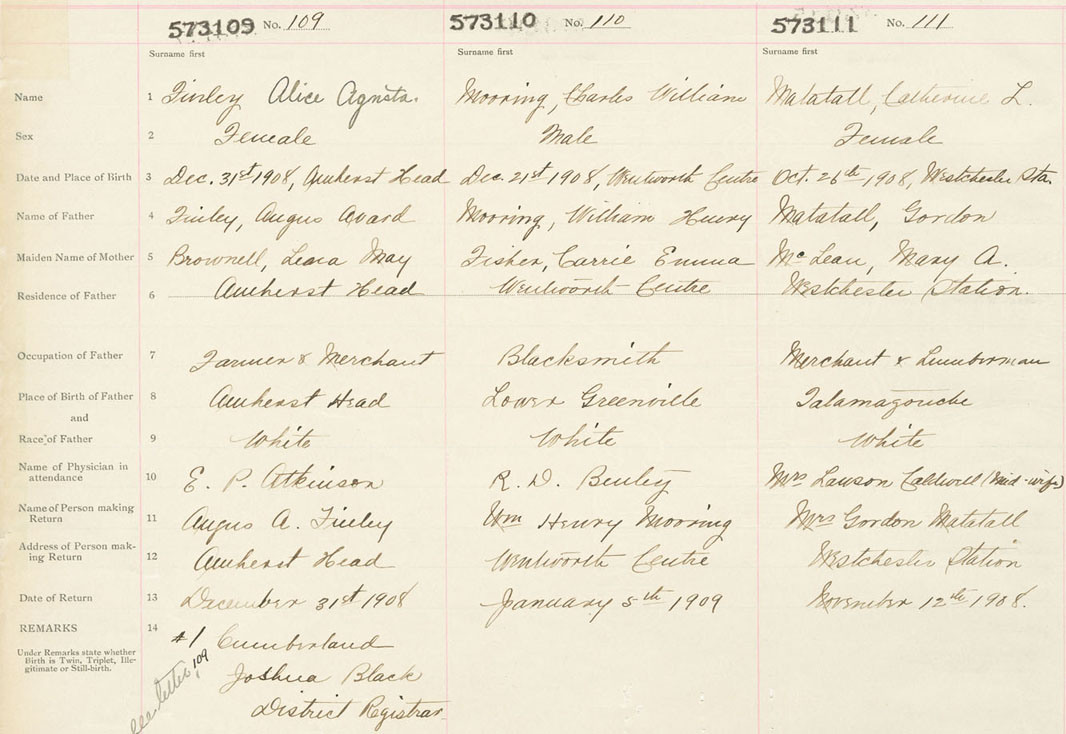 573109 No. 109 573110 No. 110 573111 No. 111
Surname first Surname first Surname first
Name 1 Finley Alice Agusta. Mooring, Charles William Matatall, Catherine L.
Sex 2 Female Male Female
Date and Place of Birth 3 Dec. 31st 1908, Amherst Head Dec. 21st 1908, Wentworth Centre Oct. 26th 1908, Westchester Sta.
Name of Father 4 Finley, Angus Avard Mooring, William Henry Matatall, Gordon
Maiden Name of Mother 5 Brownell, Leora May Fisher, Carrie Emma McLean, Mary A.
Residence of Father 6 Amherst Head Wentworth Centre Westchester Station.
Occupation of Father 7 Farmer & Merchant Blacksmith Merchant & Lumberman
Place of Birth of Father 8 Amherst Head Lower Greenville Tatamagouche
and
Race of Father 9 White White White
Name of Physician in
attendance 10 E. P. Atkinson R. D. Mrs Lawson Caldwell (Mid-wife)
Name of Person making
Return 11 Angus A. Finley Wm Henry Mooring Mrs Gordon Matatall
Address of Person mak-
ing Return 12 Amherst Head Wentworth Centre Westchester Station
Date of Return 13 December 31st 1908 January 5th 1909 November 12th 1908.
REMARKS 14 #1 Cumberland
Under Remarks state whether
Birth is Twin, Triplet, Ille-
gitimate or Still-birth.
Joshua Black
District Registrar
See letter, 109